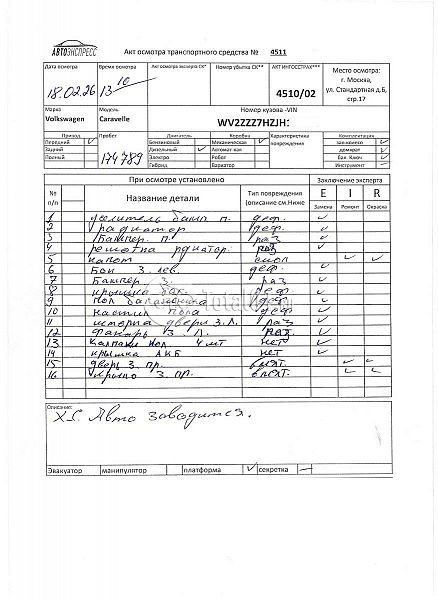 АВТОЭКСПРЕСС
Акт осмотра транспортного средства № 4511
Дата осмотра Время осмотра Акт осмотра эксперта СК* Номер убытка СК** АКТ ИНГОССТРАХ*** Место осмотра:
г. Москва,
ул. Стандартная д.6,
стр.17
18.02.26 13 10 4510/02
Марка Модель Номер кузова -VIN
Volkswagen Caravelle WV2ZZZ7HZJH
Привод Пробег Двигатель Коробка Характеристика повреждения Комплектация
Передний Бензиновый Механическая зап.колесо
Задний Дизельный Автомат кая домкрат
Полный 174789 Электро Робот Бал. Ключ
Гибрид Вариатор Инструмент
При осмотре установлено Заключение эксперта
№ п/п Название детали Тип повреждения (см.описание.Ниже E I R
Замена Ремонт Окраска
1 бамп п. деф.
2 радиатор деф.
3 Бампер. п. раз
4 решетка
5 капот
6 Бок З. лев. деф.
7 Бампер З. раз
8 крышка баг. деф.
9 пол багажника деф
10 настил пола деф.
11 двери З.Л. раз
12 фонарь З Л. раз.
13 Колпаки кол 4 шт нет
14 крышка АКБ нет
15 дверь З. пр.
16 крыло З. пр.
Описание:
Х.З. Авто заводится.
Эвакуатор манипулятор платформа секретка